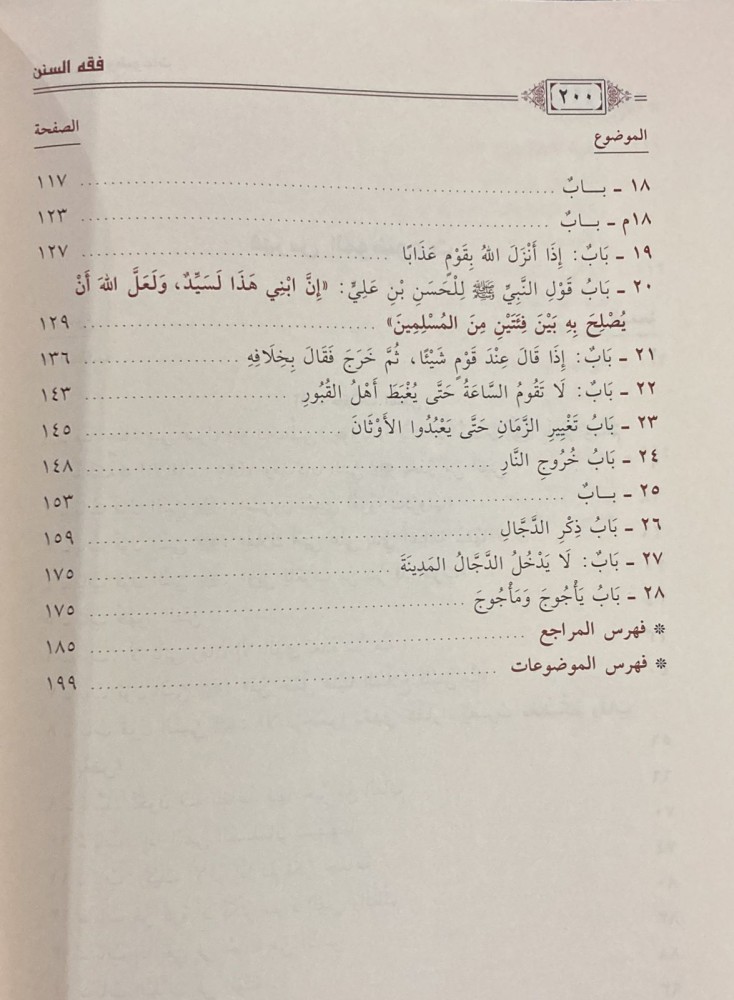 فقه السنن
٢٠٠
الموضوع الصفحة
١٨ ـ بـــابٌ ........ ١١٧
١٨م ـ بـــابٌ ........ ١٢٣
١٩ ـ بَابٌ: إِذَا أَنْزَلَ اللهُ بِقَوْمٍ عَذَابًا ........ ١٢٧
٢٠ ـ بَابُ قَوْلِ النَّبِيِّ ﷺ لِلْحَسَنِ بْنِ عَلِيٍّ: «إِنَّ ابْنِي هَذَا لَسَيِّدٌ، وَلَعَلَّ اللهَ أَنْ
يُصْلِحَ بِهِ بَيْنَ فِئَتَيْنِ مِنَ المُسْلِمِينَ» ........ ١٢٩
٢١ ـ بَابٌ: إِذَا قَالَ عِنْدَ قَوْمٍ شَيْئًا، ثُمَّ خَرَجَ فَقَالَ بِخِلَافِهِ ........ ١٣٦
٢٢ ـ بَابٌ: لَا تَقُومُ السَّاعَةُ حَتَّى يُغْبَطَ أَهْلُ القُبُورِ ........ ١٤٣
٢٣ ـ بَابُ تَغْيِيرِ الزَّمَانِ حَتَّى يَعْبُدُوا الأَوْثَانَ ........ ١٤٥
٢٤ ـ بَابُ خُرُوجِ النَّارِ ........ ١٤٨
٢٥ ـ بـــابٌ ........ ١٥٣
٢٦ ـ بَابُ ذِكْرِ الدَّجَّالِ ........ ١٥٩
٢٧ ـ بَابٌ: لَا يَدْخُلُ الدَّجَّالُ المَدِينَةَ ........ ١٧٥
٢٨ ـ بَابُ يَأْجُوجَ وَمَأْجُوجَ ........ ١٧٥
* فهرس المراجع ........ ١٨٥
* فهرس الموضوعات ........ ١٩٩